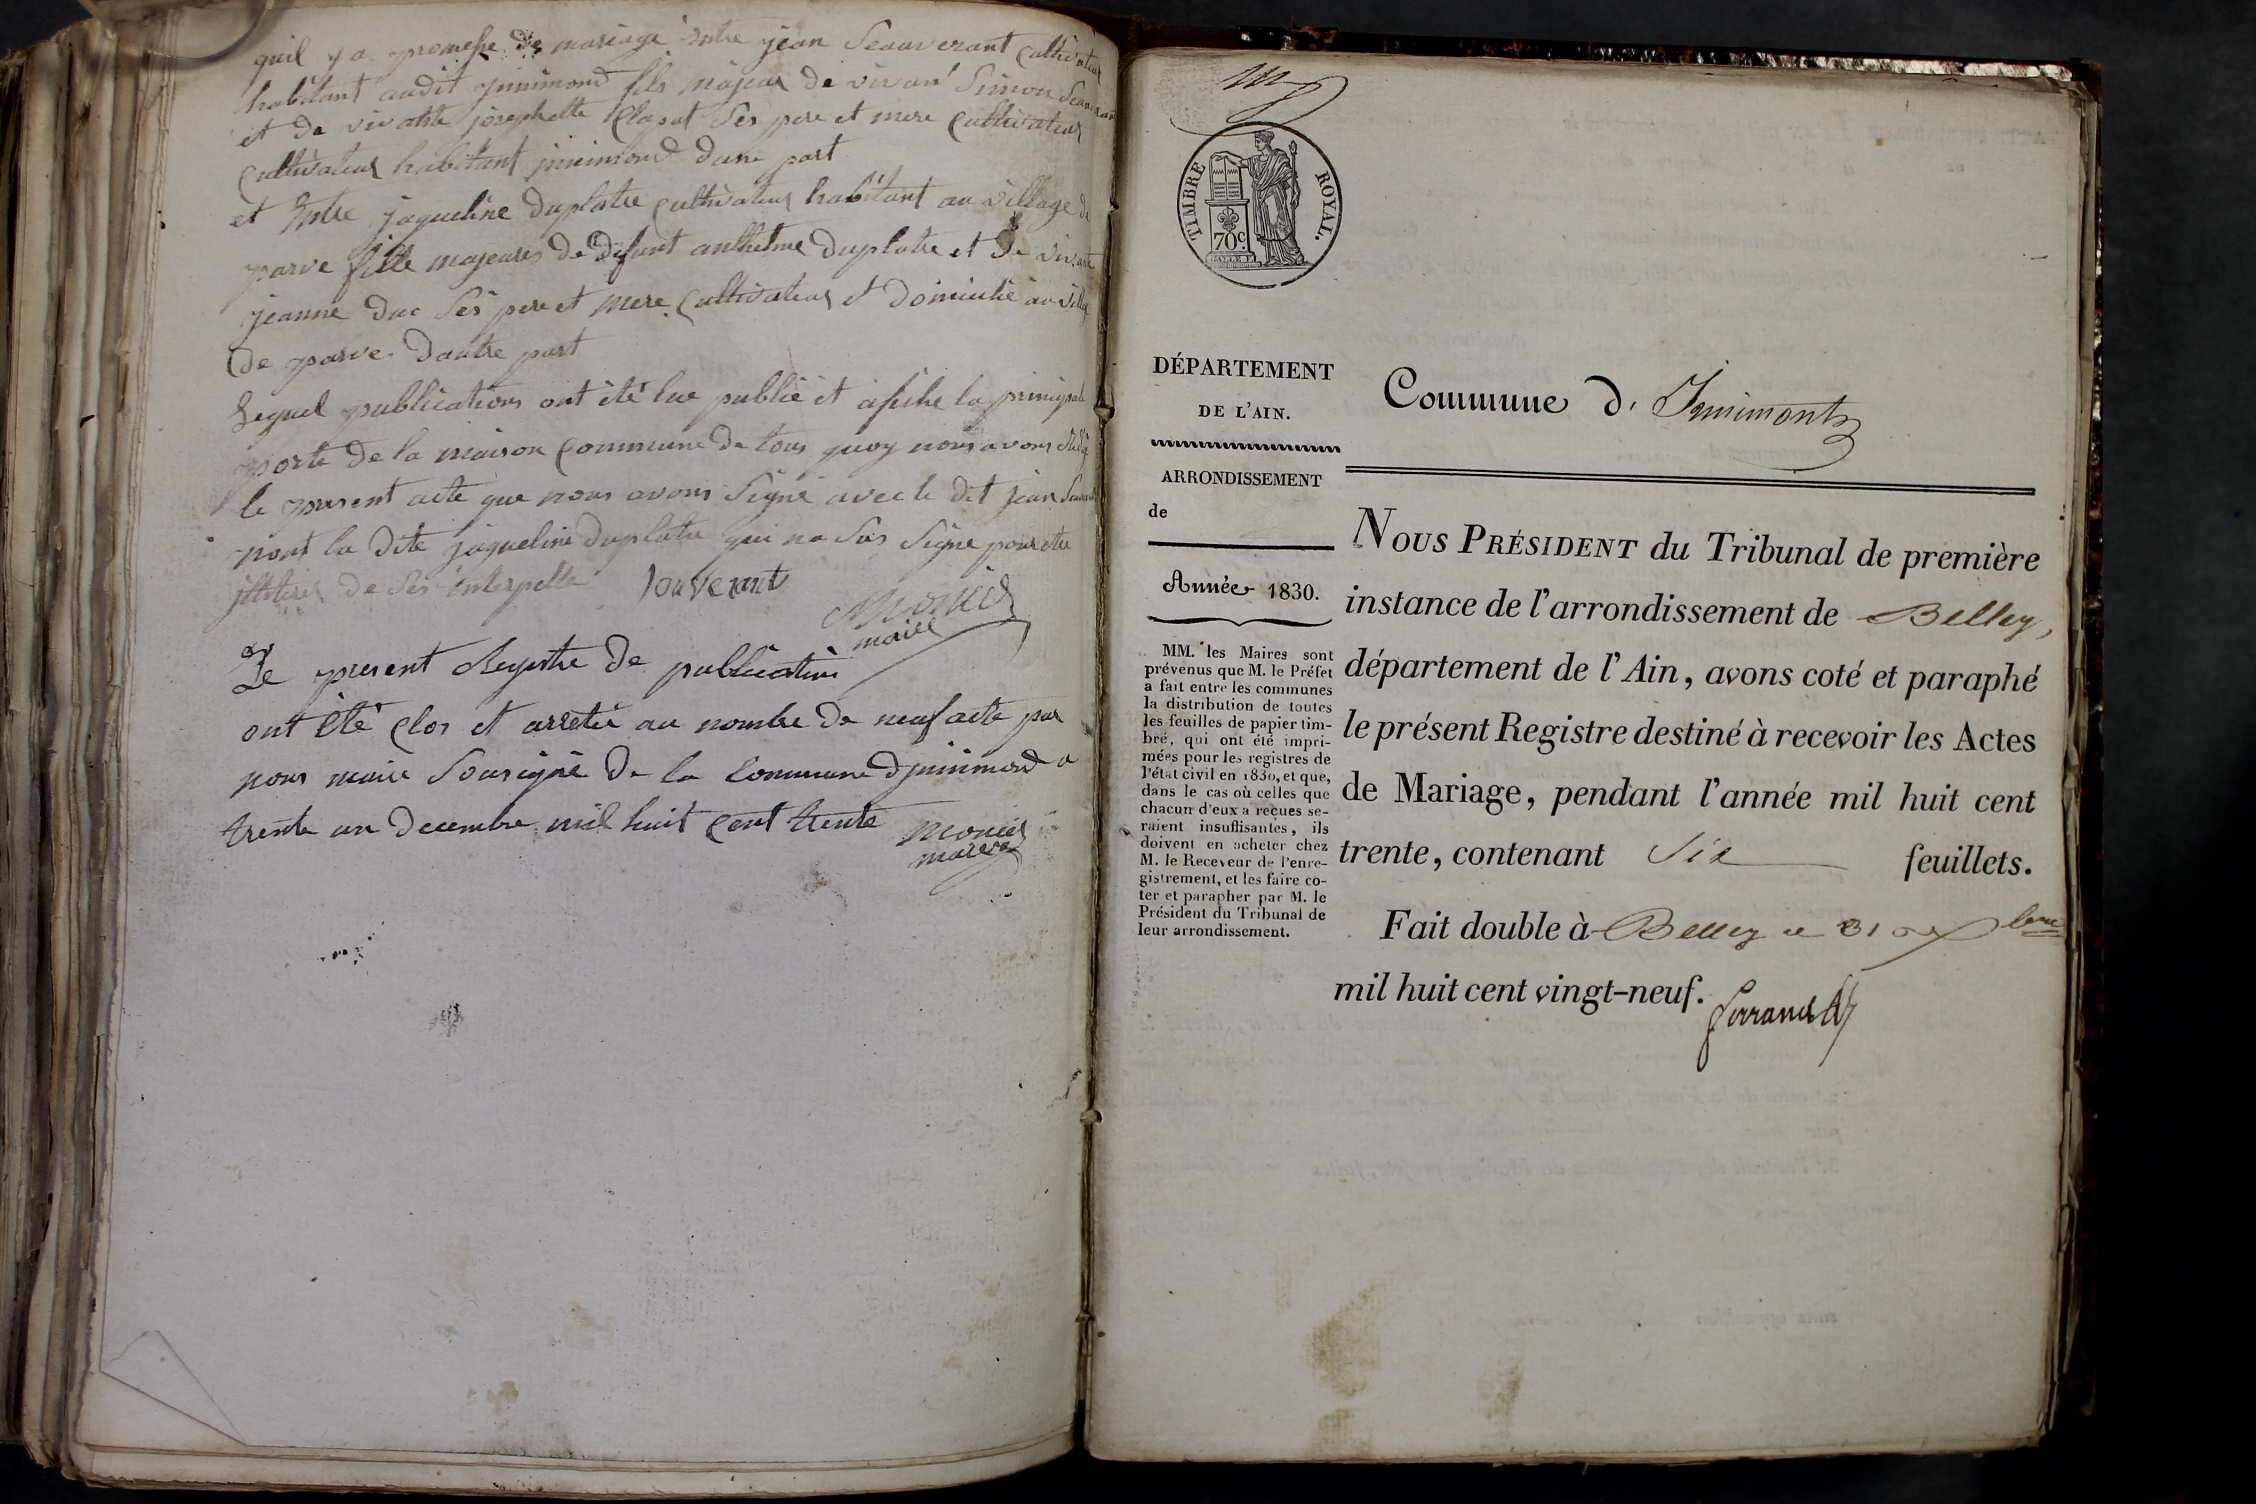 quil y a promesse de mariage entre jean Seauverant Cultivateur
habitant audit jnnimond fils majeur de vivant Simon
et de vivante josephette Clapat Ses pere et mere Cultivateur
Cultivateur habitant jnnimond dune part
et Entre jaqueline Duplatre Cultivateur habitant au village de
parve fille majeure de Defunt anthelme Duplatre et De vivante
jeanne Duc Ses pere et mere Cultivateur et Domicilié au village
De parve Dautre part
Lequel publications ont été lue publié et afiché la principale
porte de la maison Commune De tous quoy nous avons
le present acte que nous avons Signé avec le dit jean
non la Dite jaqueline Duplatre qui na Sus Signé pour être
de Ses interpellé Souverant
Monier
maire
Le present Registre De publication
ont été Clos et arrêtée au nombre De neuf acte par
nous maire Sousigné De la Commune Djnnimond a
trente un Decembre mil huit Cent trente Monier
maire
TIMBRE ROYAL.
70c.
DÉPARTEMENT
DE L'AIN.
Commune d' Innimont
ARRONDISSEMENT
de
Année 1830.
MM. les Maires sont
prévenus que M. le Préfet
a fait entre les communes
la distribution de toutes
les feuilles de papier tim-
bré, qui ont été impri-
mées pour les registres de
l'état civil en 1830, et que,
dans le cas où celles que
chacun d'eux a reçues se-
raient insuffisantes, ils
doivent en acheter chez
M. le Receveur de l'enre-
gistrement, et les faire co-
ter et parapher par M. le
Président du Tribunal de
leur arrondissement.
NOUS PRÉSIDENT du Tribunal de première
instance de l'arrondissement de Belley,
département de l'Ain, avons coté et paraphé
le présent Registre destiné à recevoir les Actes
de Mariage, pendant l'année mil huit cent
trente, contenant Six feuillets.
Fait double à Belley le 31 Xbre
mil huit cent vingt-neuf.